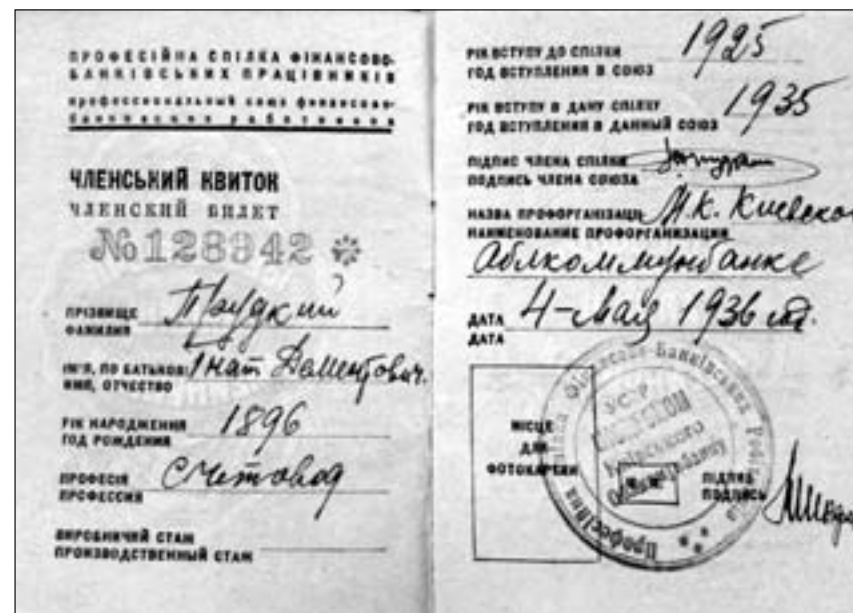 ПРОФЕСІЙНА СПІЛКА ФІНАНСОВО-
БАНКІВСЬКИХ ПРАЦІВНИКІВ
профессиональный союз финансово-
банковских работников
ЧЛЕНСЬКИЙ КВИТОК
ЧЛЕНСКИЙ БИЛЕТ
№128942
ПРІЗВИЩЕ
ФАМИЛИЯ
ІМ'Я, ПО БАТЬКОВІ Гнат Дементович.
ИМЯ, ОТЧЕСТВО
РІК НАРОДЖЕННЯ 1896
ГОД РОЖДЕНИЯ
ПРОФЕСІЯ Счетовод
ПРОФЕССИЯ
ВИРОБНИЧИЙ СТАЖ
ПРОИЗВОДСТВЕННЫЙ СТАЖ
РІК ВСТУПУ ДО СПІЛКИ 1925
ГОД ВСТУПЛЕНИЯ В СОЮЗ
РІК ВСТУПУ В ДАНУ СПІЛКУ 1935
ГОД ВСТУПЛЕНИЯ В ДАННЫЙ СОЮЗ
ПІДПИС ЧЛЕНА СПІЛКИ
ПОДПИСЬ ЧЛЕНА СОЮЗА
НАЗВА ПРОФОРГАНІЗАЦІЇ М.К. Киевском
НАИМЕНОВАНИЕ ПРОФОРГАНИЗАЦИИ
Облкоммунбанке
ДАТА 4-Мая 1936
ДАТА
МІСЦЕ
ДЛЯ
ФОТОКАРТКИ
ПІДПИС
ПОДПИСЬ
Професійна Спілка Фінансово-Банківських
УСРР
Київського